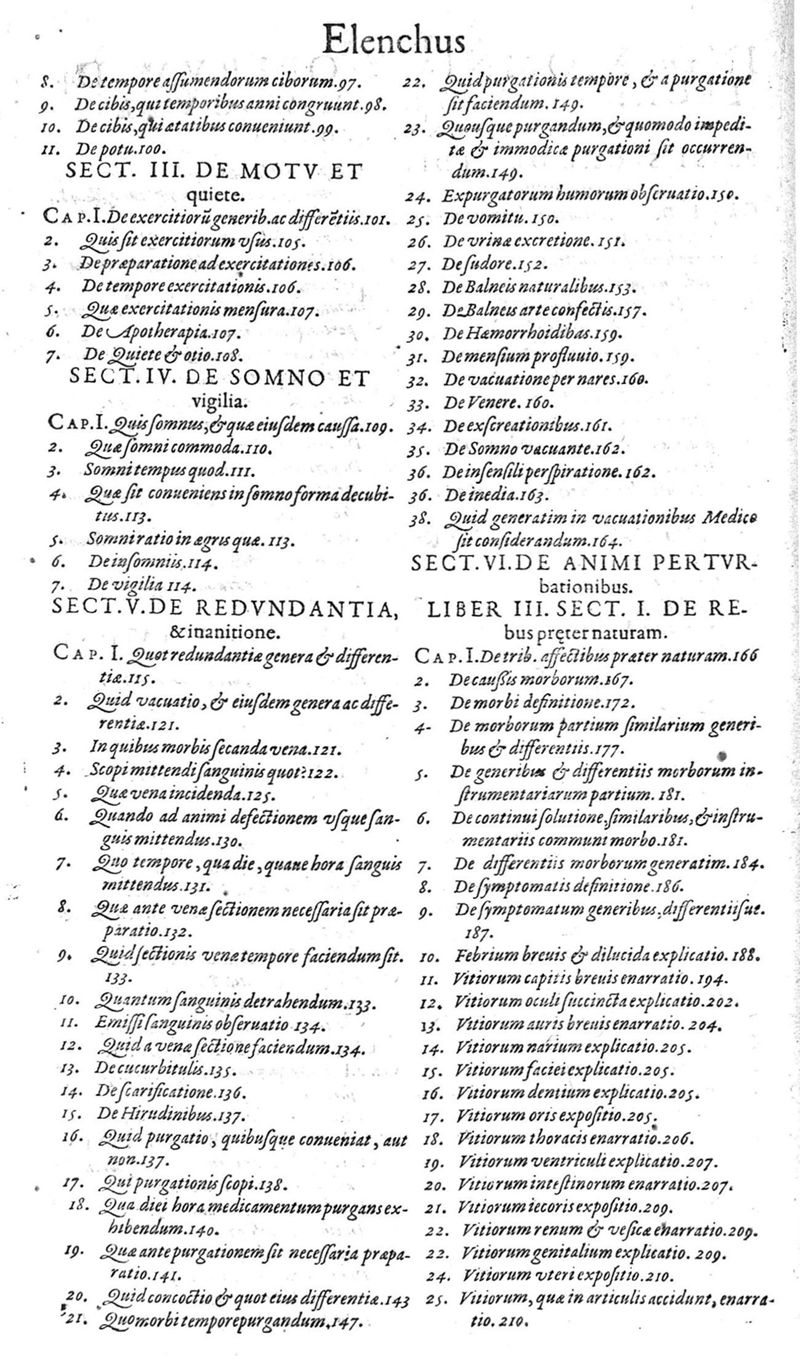 Elenchus
8. De tempore assumendorum ciborum.97.
9. De cibis, qui temporibus anni congruunt.98.
10. De cibis, qui ætatibus conueniunt.99.
11. De potu.100.
SECT. III. DE MOTV ET
quiete.
CAP.I. De exercitiorũ generib. ac differẽtiis.101.
2. Quis sit exercitiorum vsus.105.
3. De præparatione ad exercitationes.106.
4. De tempore exercitationis.106.
5. Quæ exercitationis mensura.107.
6. De Apotherapia.107.
7. De Quiete & otio.108.
SECT. IV. DE SOMNO ET
vigilia.
CAP.I. Quis somnus, & quæ eiusdem caussa.109.
2. Quæ somni commoda.110.
3. Somni tempus quod.111.
4. Quæ sit conueniens in somno forma decubi-
tus.113.
5. Somni ratio in ægris quæ.113.
6. De insomniis.114.
7. De vigilia 114.
SECT.V. DE REDVNDANTIA,
& inanitione.
CAP. I. Quot redundantiæ genera & differen-
tiæ.115.
2. Quid vacuatio, & eiusdem genera ac diffe-
rentiæ.121.
3. In quibus morbis secanda vena.121.
4. Scopi mittendi sanguinis quot?122.
5. Quæ vena incidenda.125.
6. Quando ad animi defectionem vsque san-
guis mittendus.130.
7. Quo tempore, qua die, quaue hora sanguis
mittendus.131.
8. Quæ ante venæ sectionem necessaria sit præ-
paratio.132.
9. Quid sectionis venæ tempore faciendum sit.
133.
10. Quantum sanguinis detrahendum.133.
11. Emissi sanguinis obseruatio 134.
12. Quid a venæ sectione faciendum.134.
13. De cucurbitulis.135.
14. De scarificatione.136.
15. De Hirudinibus.137.
16. Quid purgatio, quibusque conueniat, aut
non.137.
17. Qui purgationis scopi.138.
18. Qua diei hora medicamentum purgans ex-
hibendum.140.
19. Quæ ante purgationem sit necessaria præpa-
ratio.141.
20. Quid concoctio & quot eius differentiæ.143
21. Quo morbi tempore purgandum.147.
22. Quid purgationis tempore, & a purgatione
sit faciendum.149.
23. Quousque purgandum, & quomodo impedi-
tæ & immodicæ purgationi sit occurren-
dum.149.
24. Expurgatorum humorum obseruatio.150.
25. De vomitu.150.
26. De vrinæ excretione.151.
27. De sudore.152.
28. De Balneis naturalibus.153.
29. De Balneis arte confectis.157.
30. De Hæmorrhoidibas.159.
31. De mensium profluuio.159.
32. De vacuatione per nares.160.
33. De Venere.160.
34. De exscreationibus.161.
35. De Somno vacuante.162.
36. De insensili perspiratione.162.
36. De inedia.163.
38. Quid generatim in vacuationibus Medico
sit considerandum.164.
SECT.VI. DE ANIMI PERTVR-
bationibus.
LIBER III. SECT. I. DE RE-
bus pręter naturam.
CAP.I. De trib. affectibus præter naturam.166
2. De caussis morborum.167.
3. De morbi definitione.172.
4- De morborum partium similarium generi-
bus & differentiis.177.
5. De generibus & differentiis morborum in-
strumentariarum partium. 181.
6. De continui solutione, similaribus, & instru-
mentariis communi morbo.181.
7. De differentiis morborum generatim.184.
8. De symptomatis definitione.186.
9. De symptomatum generibus, differentiisue.
187.
10. Febrium breuis & dilucida explicatio.188.
11. Vitiorum capitis breuis enarratio.194.
12. Vitiorum oculi succincta explicatio.202.
13. Vitiorum auris breuis enarratio. 204.
14. Vitiorum narium explicatio.205.
15. Vitiorum faciei explicatio.205.
16. Vitiorum dentium explicatio.205.
17. Vitiorum oris expositio.205.
18. Vitiorum thoracis enarratio.206.
19. Vitiorum ventriculi explicatio.207.
20. Vitiorum intestinorum enarratio.207.
21. Vitiorum iecoris expositio.209.
22. Vitiorum renum & vesicæ enarratio.209.
22. Vitiorum genitalium explicatio. 209.
24. Vitiorum vteri expositio.210.
25. Vitiorum, quæ in articulis accidunt, enarra-
tio. 210.